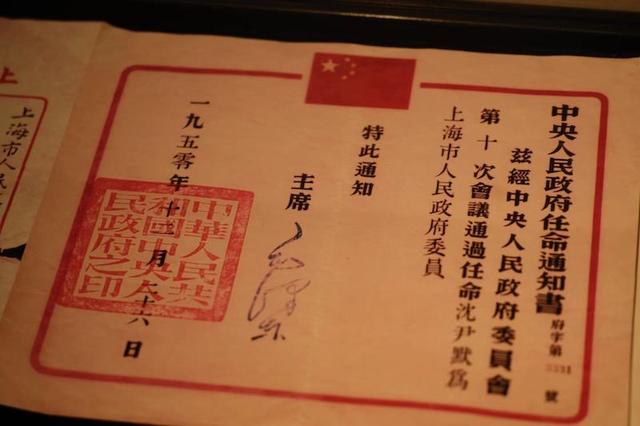 中央人民政府任命通知書 府字第3331號
茲經中央人民政府委員會
第十次會議通過任命沈尹默為
上海市人民政府委員
特此通知
主席 毛澤東
一九五零年十二月二十六日
中華人民共
和國中央人
民政府之印
上
上海市人民